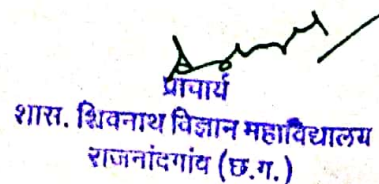 प्राचार्य
शास. शिवनाथ विज्ञान महाविद्यालय
राजनांदगांव (छ.ग.)